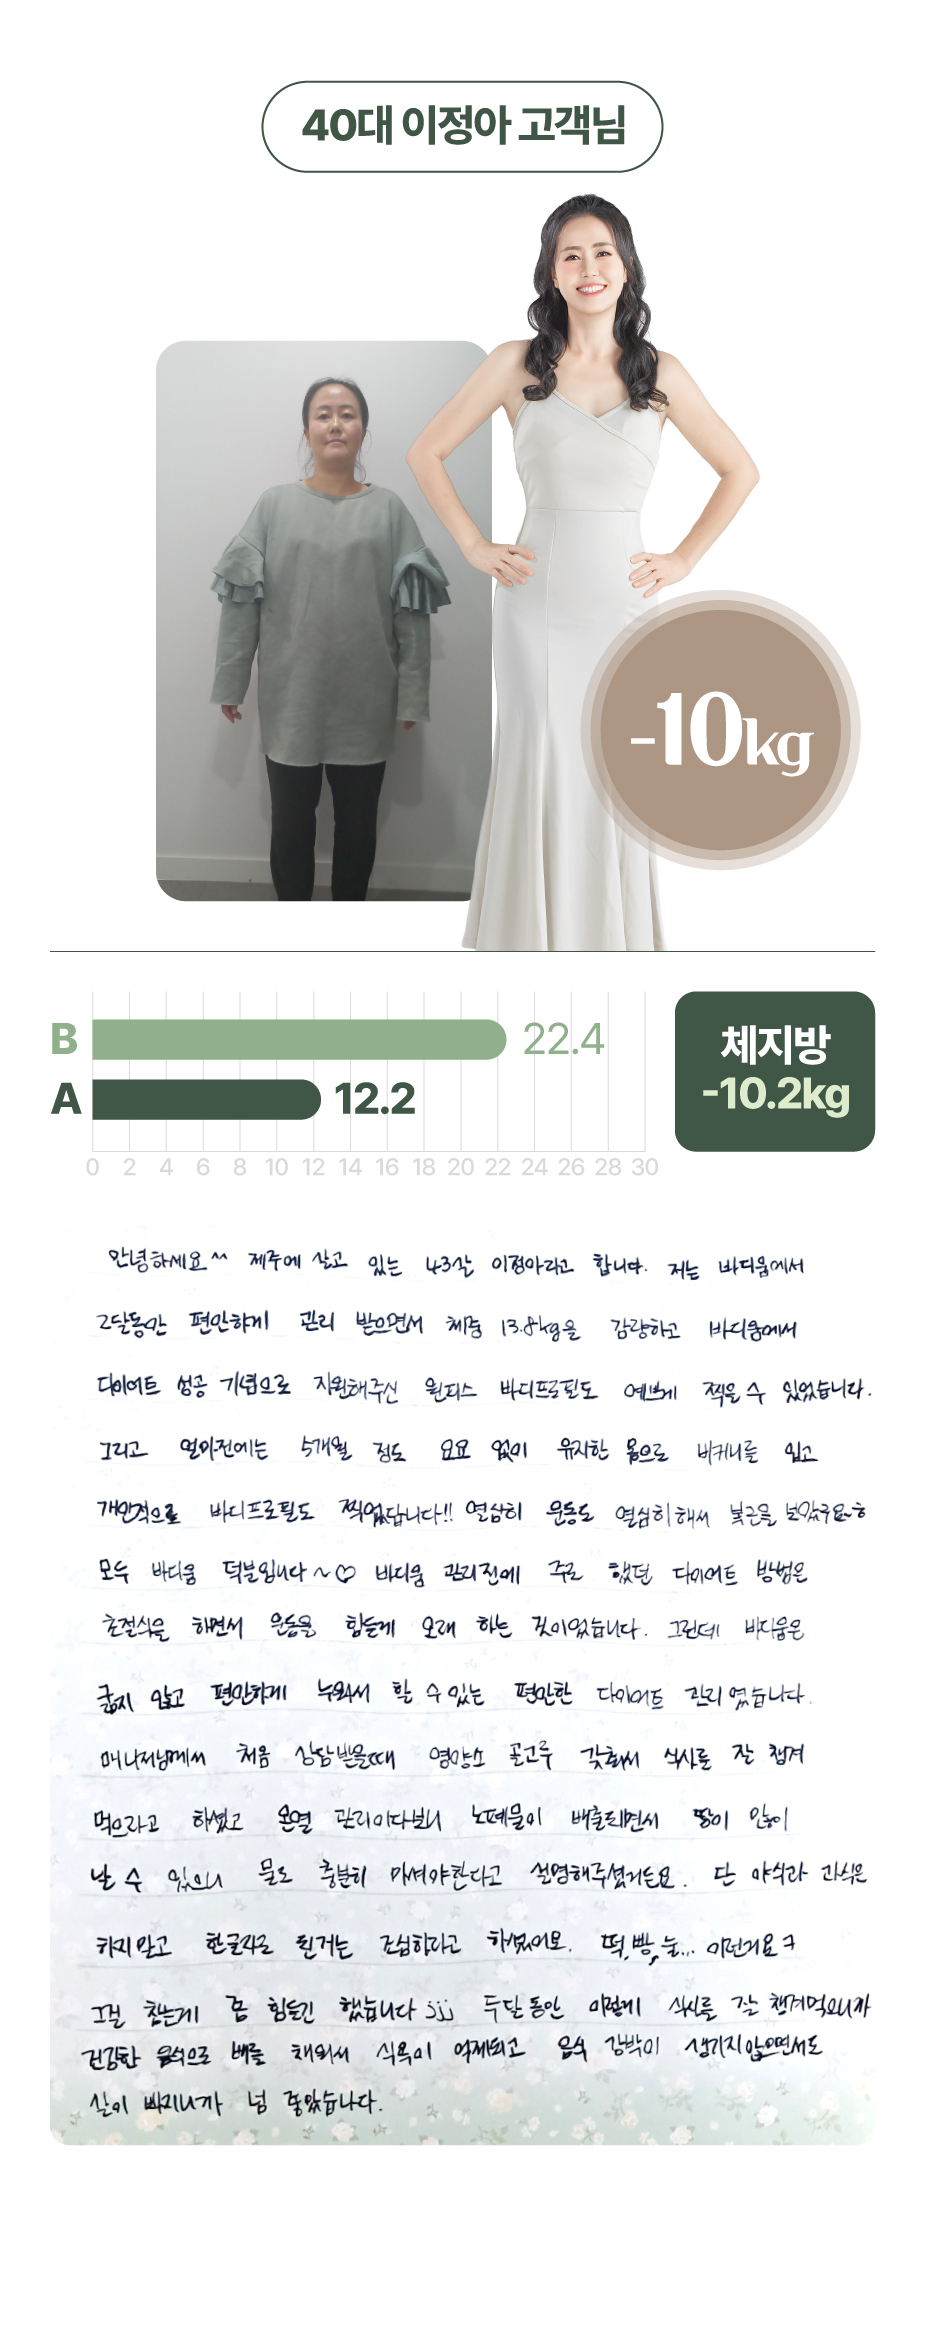 40대 이정아 고객님
-10kg
B 22.4
A 12.2
0 2 4 6 8 10 12 14 16 18 20 22 24 26 28 30
체지방
-10.2kg
안녕하세요^^ 제주에 살고 있는 43살 이정아라고 합니다. 저는 바디움에서
2달동안 편안하게 관리 받으면서 체중 13.8kg을 감량하고 바디움에서
다이어트 성공 기념으로 지원해주신 원피스 바디프로필도 예쁘게 찍을 수 있었습니다.
그리고 얼마전에는 5개월 정도 요요 없이 유지한 몸으로 비키니를 입고
개인적으로 바디프로필도 찍었답니다!! 열심히 운동도 열심히해서 복근을 보았구요~ㅎ
모두 바디움 덕분입니다~♡ 바디움 관리전에 주로 했던 다이어트 방법은
초절식을 하면서 운동을 힘들게 오래 하는 것이었습니다. 그런데 바디움은
굶지 않고 편안하게 누워서 할 수 있는 편안한 다이어트 관리였습니다.
매니저님께서 처음 상담받을때 영양소 골고루 갖춰서 식사를 잘 챙겨
먹으라고 하셨고 온열 관리이다보니 노폐물이 배출되면서 땀이 많이
날 수 있으니 물도 충분히 마셔야한다고 설명해주셨거든요. 단 야식과 과식은
하지말고 한글자로 된거는 조심하라고 하셨어요. 떡,빵,술... 이런거요ㅋ
그걸 참는게 좀 힘들긴 했습니다 ;;; 두달동안 이렇게 식사를 잘 챙겨먹으니까
건강한 음식으로 배를 채워서 식욕이 억제되고 음식 강박이 생기지않으면서도
살이 빠지니까 넘 좋았습니다.